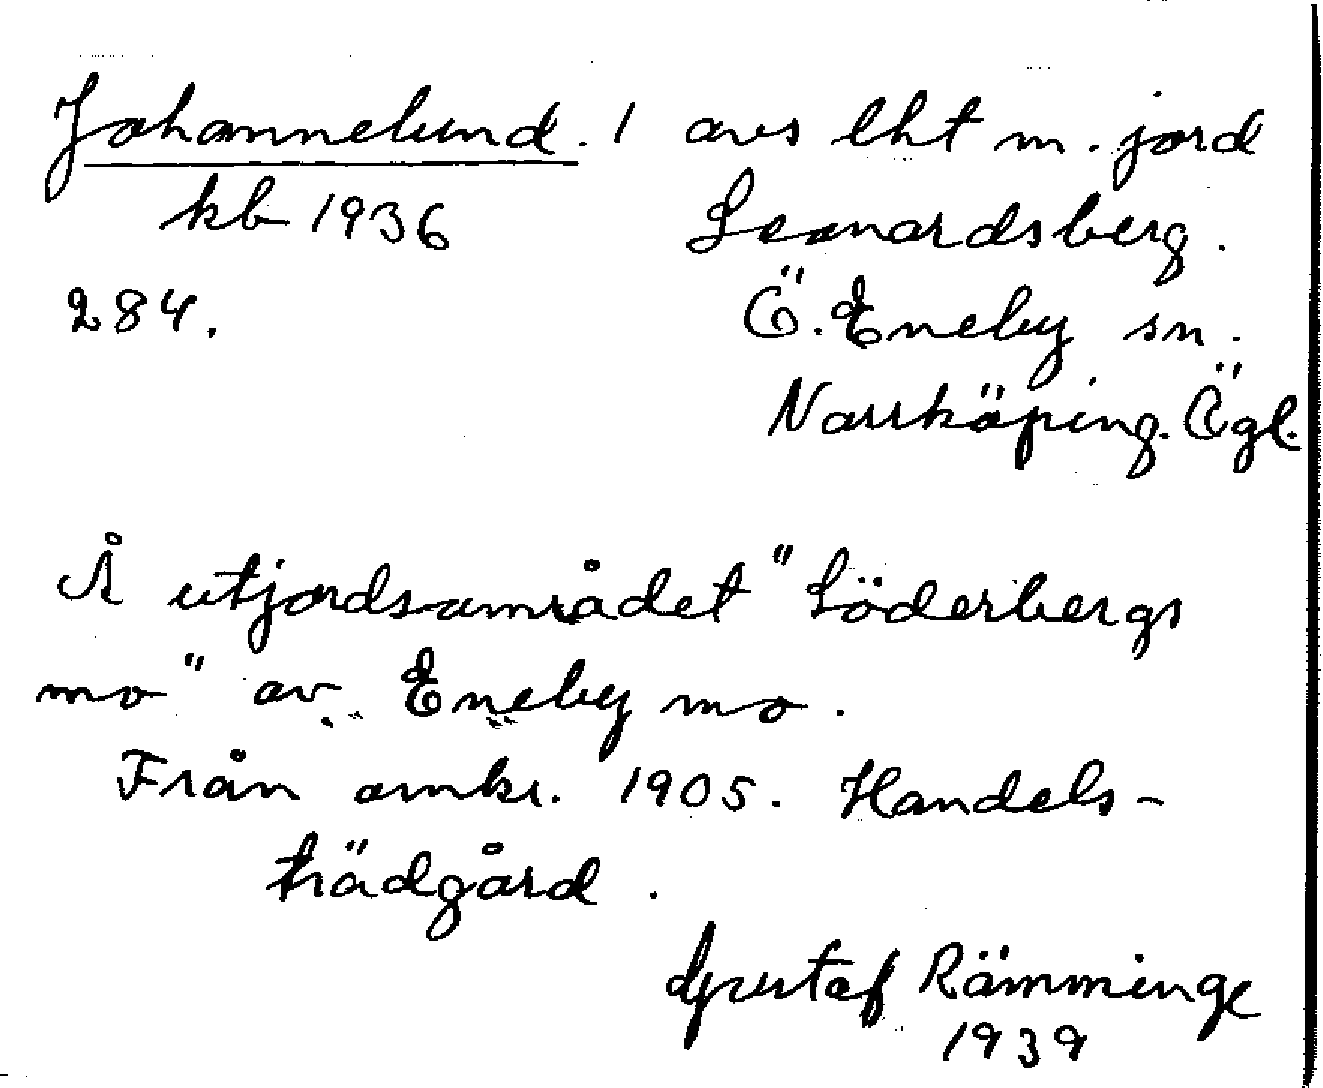 Johannelund. 1 avs lht m. jord
kb 1936 Leonardsberg.
284. Ö. Eneby sn.
Norrköping. Ögl.
Å utjordsområdet "Söderbergs
mo" av Eneby mo.
Från omkr. 1905. Handels-
trädgård.
Gustaf Rämminge
1939